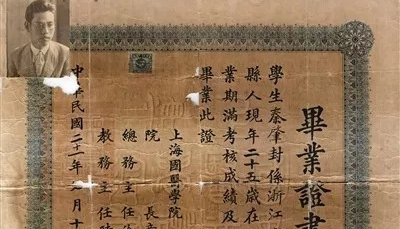 畢業證書
學生秦肇封係浙江
縣人現年二十五歲在
業期滿考核成績及
畢業此證
上海國醫學院
院長
總務主任
教務主任
中華民國二十一年 月十